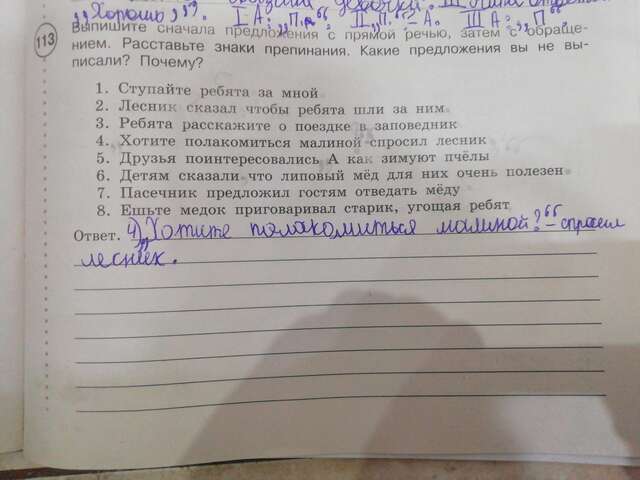 „Хорошо", ". I А: „П." II „П."-А. III А: „П".
113 Выпишите сначала предложения с прямой речью, затем с обраще-
нием. Расставьте знаки препинания. Какие предложения вы не вы-
писали? Почему?
1. Ступайте ребята за мной
2. Лесник сказал чтобы ребята шли за ним
3. Ребята расскажите о поездке в заповедник
4. Хотите полакомиться малиной спросил лесник
5. Друзья поинтересовались А как зимуют пчёлы
6. Детям сказали что липовый мёд для них очень полезен
7. Пасечник предложил гостям отведать мёду
8. Ешьте медок приговаривал старик, угощая ребят
Ответ. 4) „Хотите полакомиться малиной?" – спросил
лесник.